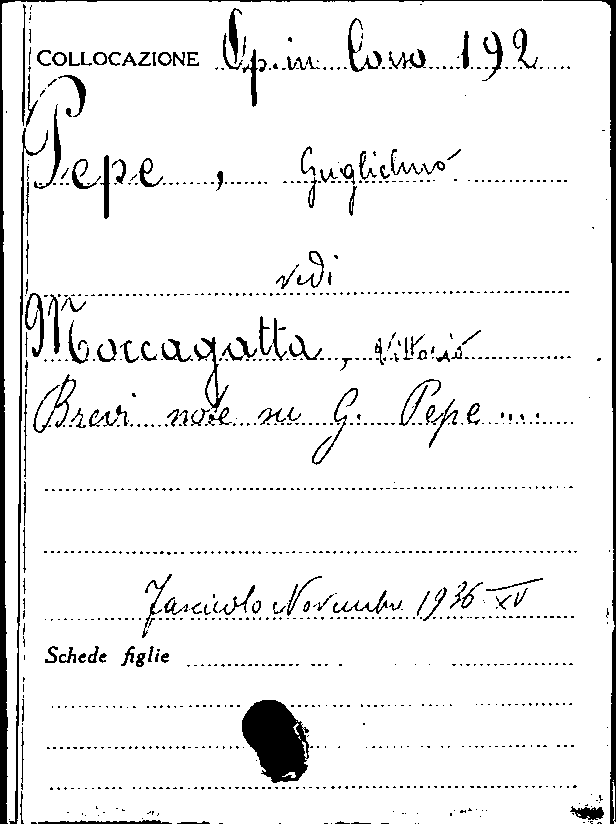 COLLOCAZIONE Op. in Corso 192
Pepe, Guglielmo
vedi
Moccagatta, Vittorio
Brevi note su G. Pepe ....
Fascicolo Novembre 1936-XV
Schede figlie